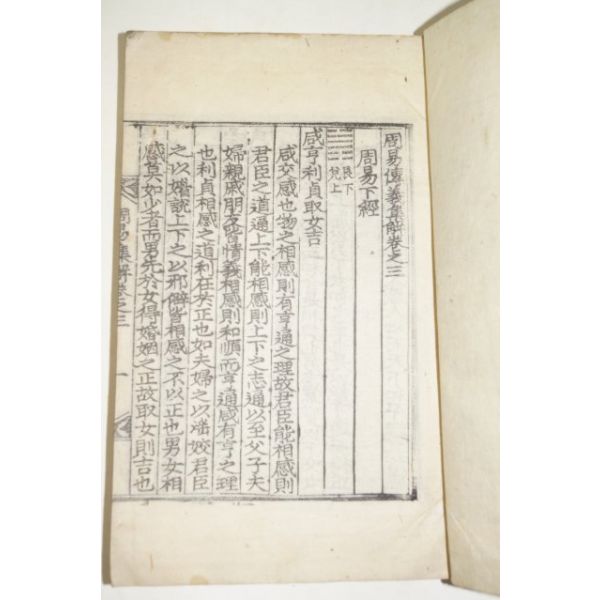 周易傳義集解卷之三
周易下經
艮下
兌上
咸亨利貞取女吉
咸交感也物之相感則有亨通之理故君臣能相感則
君臣之道通上下能相感則上下之志通以至父子夫
婦親戚朋友皆情義相感則和順而亨通咸有亨之理
也利貞相感之道利在於正也如夫婦之以淫姣君臣
之以媚說上下之以邪僻皆相感之不以正也男女相
感莫如少者而男先於女得婚姻之正故取女則吉也
周易集解卷之三
一